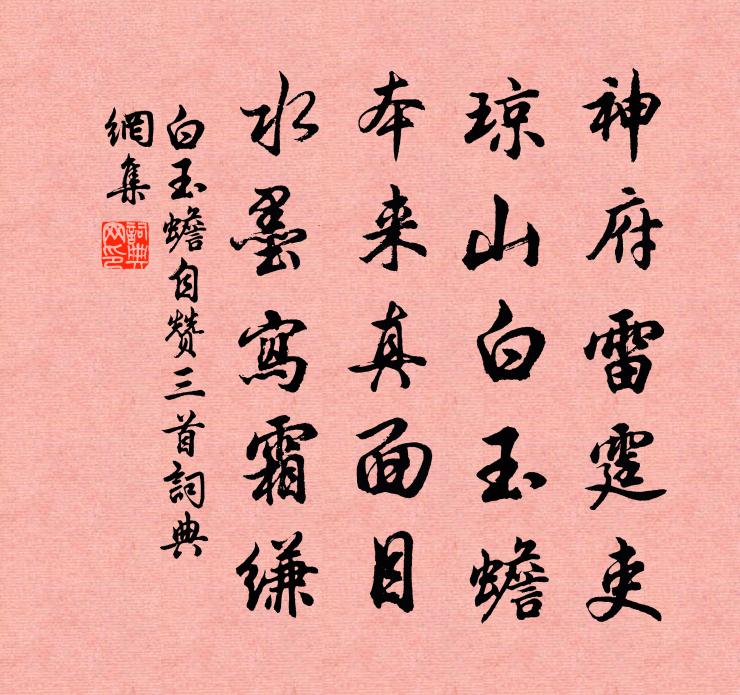 神府雷霆吏
琼山白玉蟾
本来真面目
水墨寫霜缣
白玉蟾自赞三首詞典
網集
詞典
网印